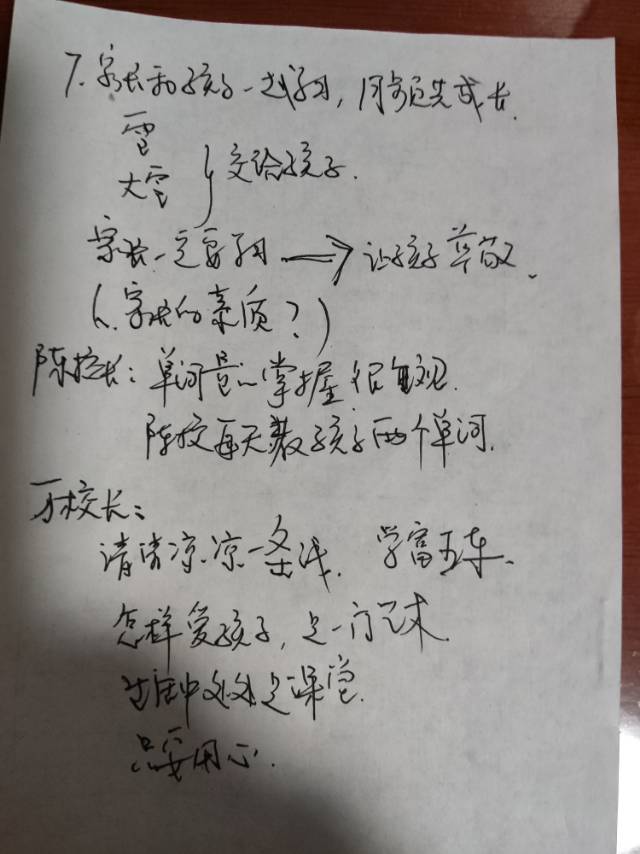 7. 家长和孩子一起学习，同频共成长.
一雹
大雹 } 交给孩子.
家长一定要学习 ⟶ 让孩子尊敬.
(、家长的素质？)
陈校长：单词量的掌握很重观.
陈校每天教孩子两个单词.
万校长：
清清凉凉一条线. 学富五车.
怎样爱孩子，是一门艺术.
生活中处处是课堂.
只要用心.